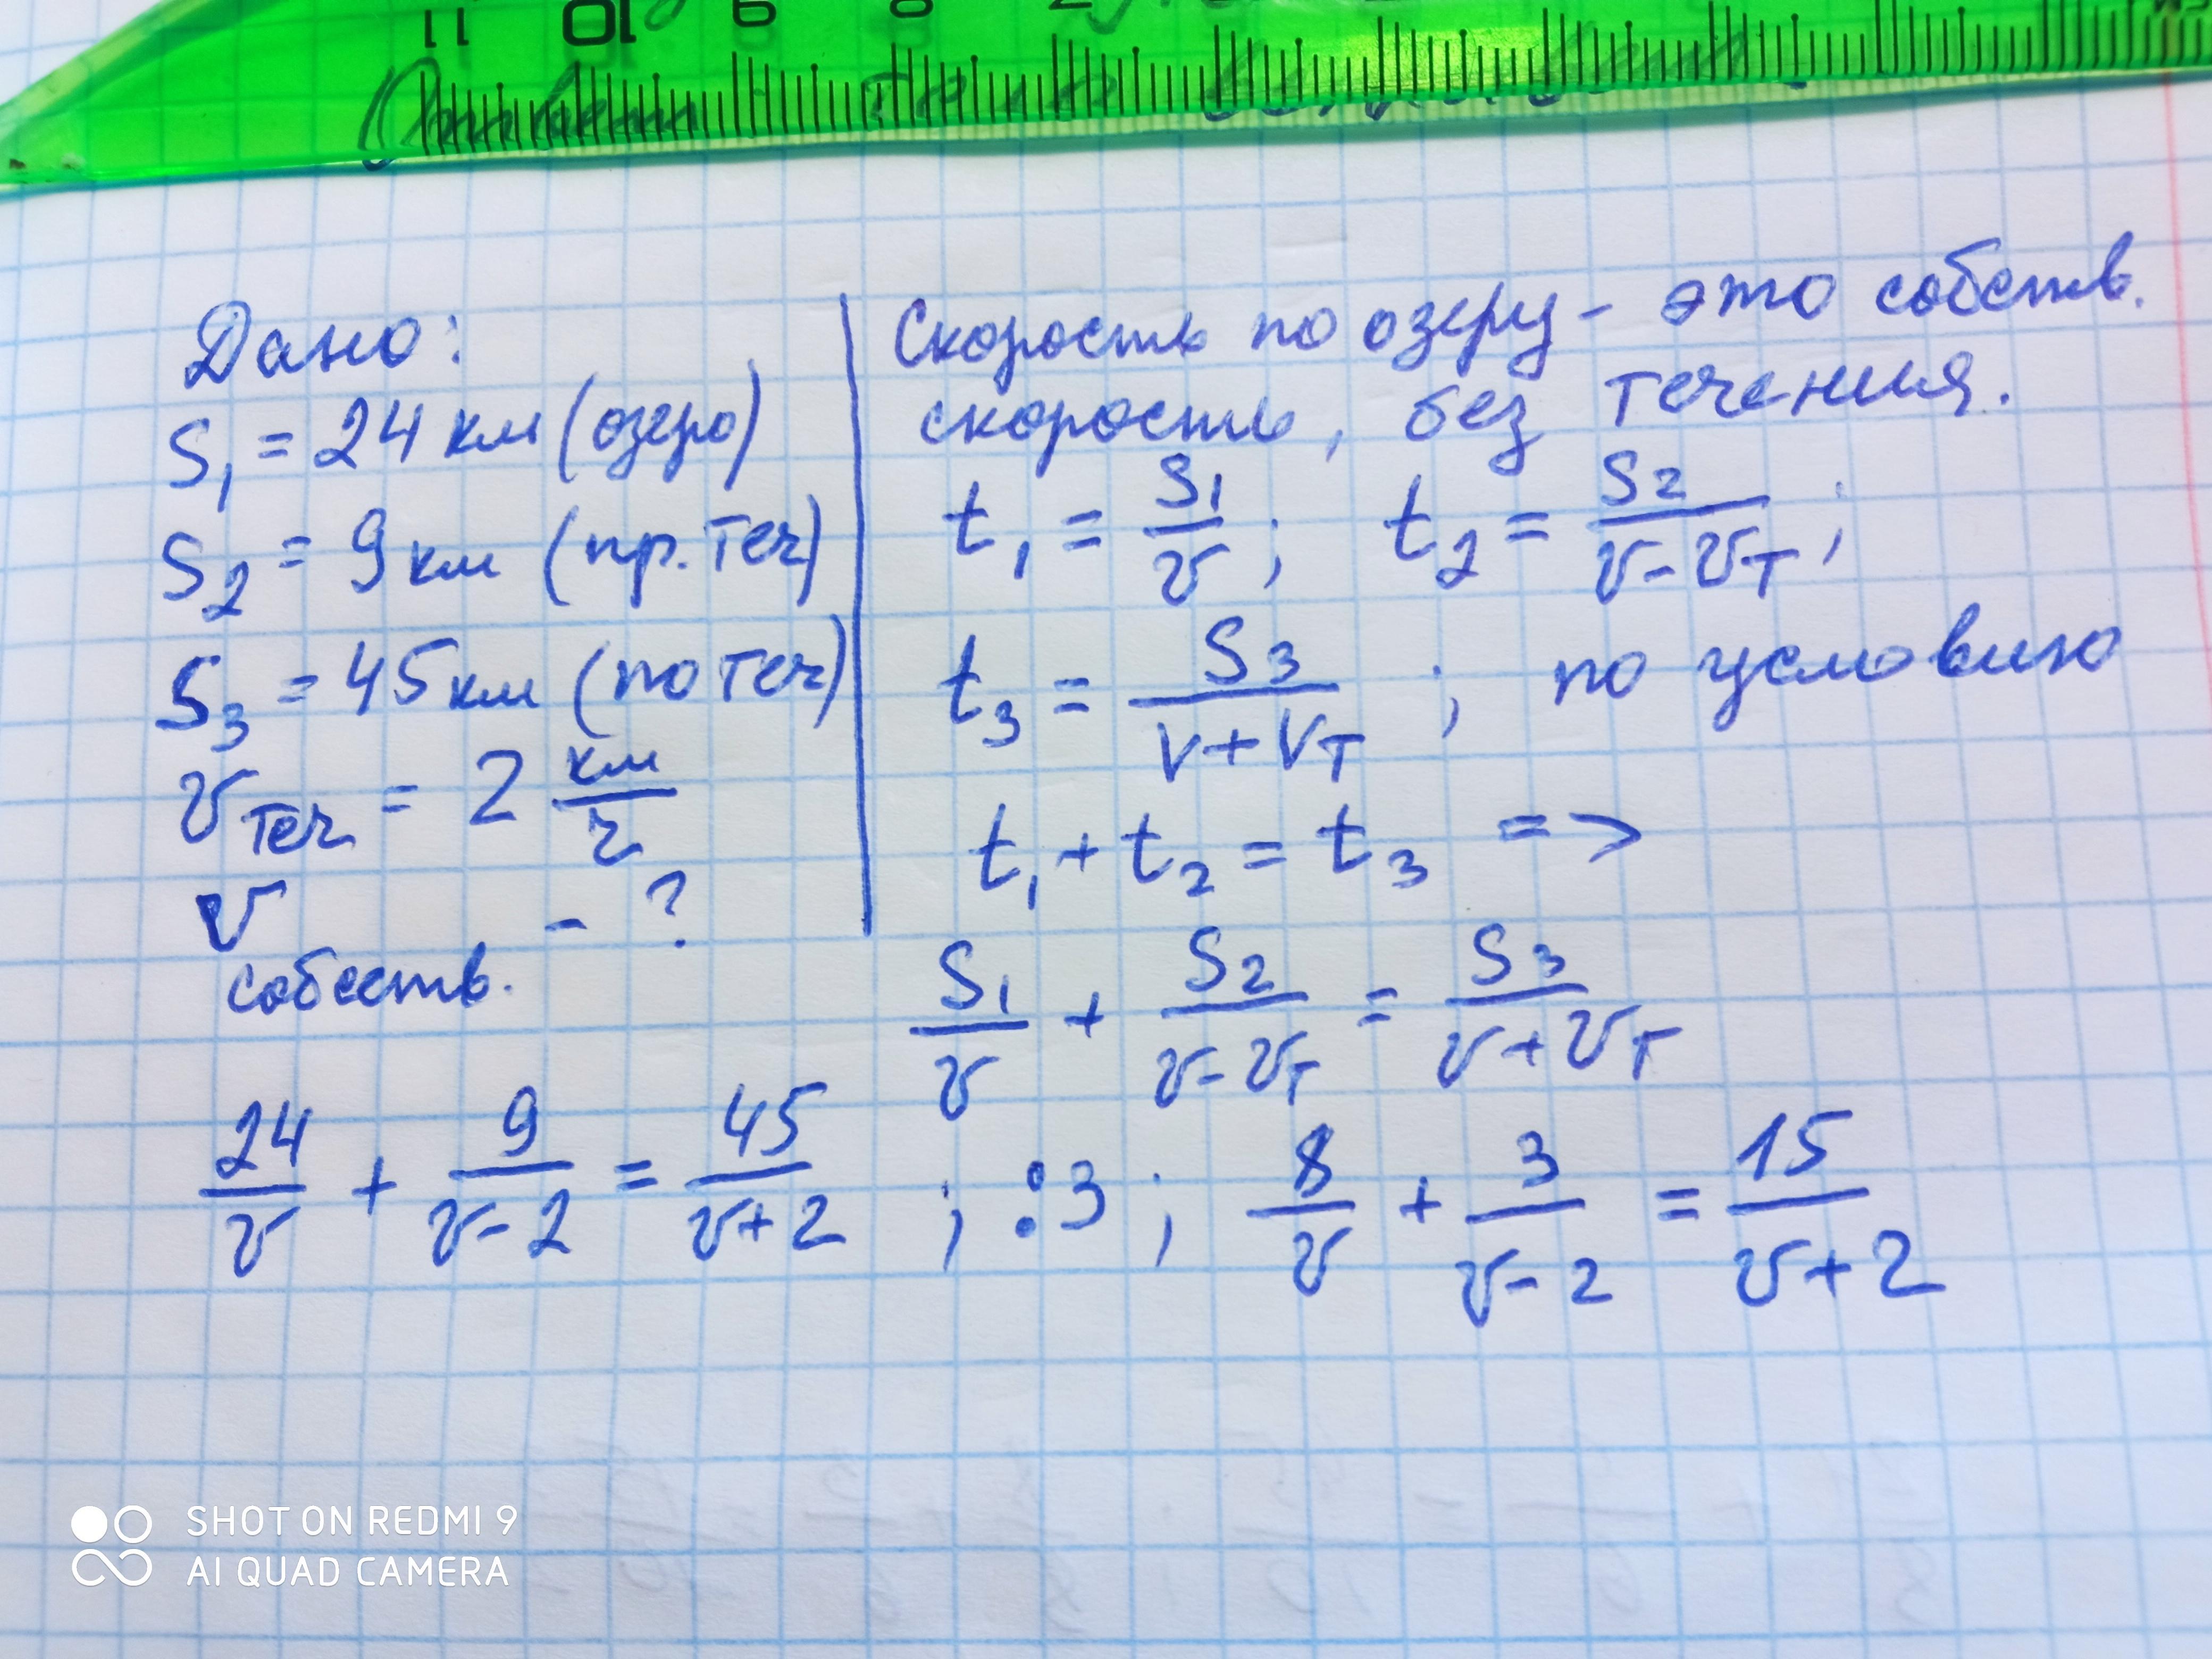 11 10 9 8 7
Ответ
Дано:
S₁ = 24 км (озеро)
S₂ = 9 км (пр. теч)
S₃ = 45 км (по теч)
v теч = 2 км/ч
v собств. - ?
Скорость по озеру - это собств.
скорость, без течения.
t₁ = S₁/v ; t₂ = S₂/(v - vт) ;
t₃ = S₃/(v + vт) ; по условию
t₁ + t₂ = t₃ =>
S₁/v + S₂/(v - vт) = S₃/(v + vт)
24/v + 9/(v - 2) = 45/(v + 2) ; :3 ; 8/v + 3/(v - 2) = 15/(v + 2)
SHOT ON REDMI 9
AI QUAD CAMERA